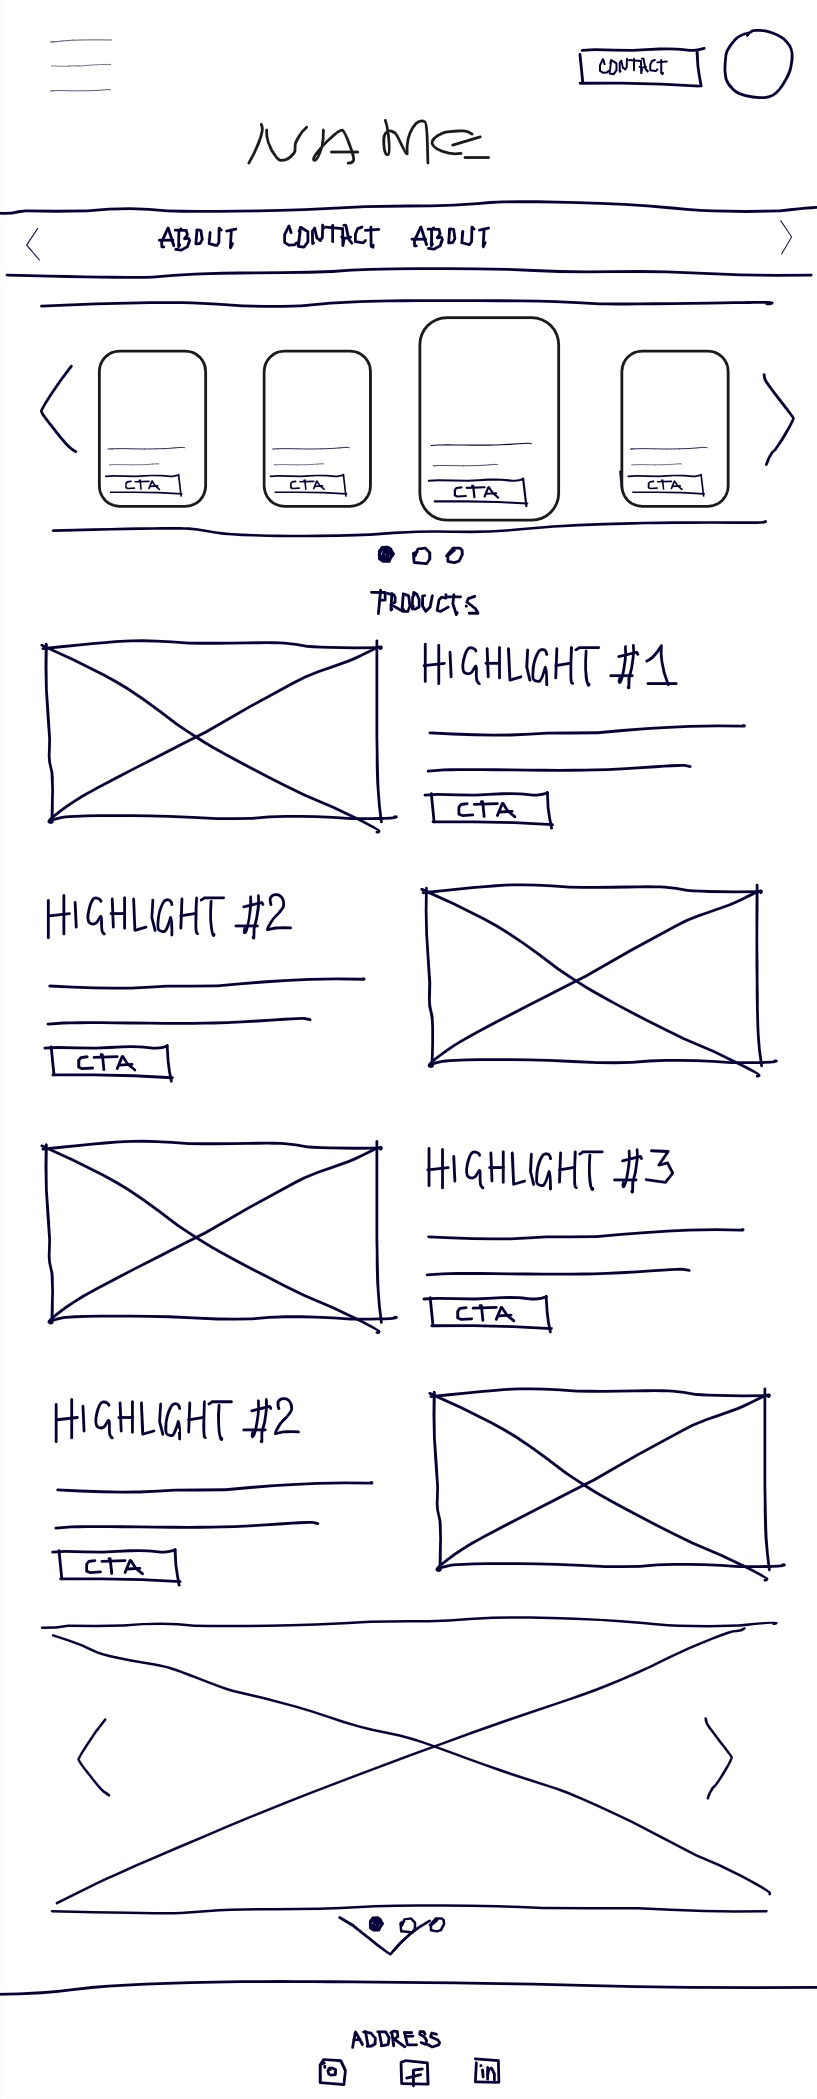 CONTACT
NAME
ABOUT CONTACT ABOUT
CTA CTA CTA CTA
PRODUCTS
HIGHLIGHT #1
CTA
HIGHLIGHT #2
CTA
HIGHLIGHT #3
CTA
HIGHLIGHT #2
CTA
ADDRESS
f in